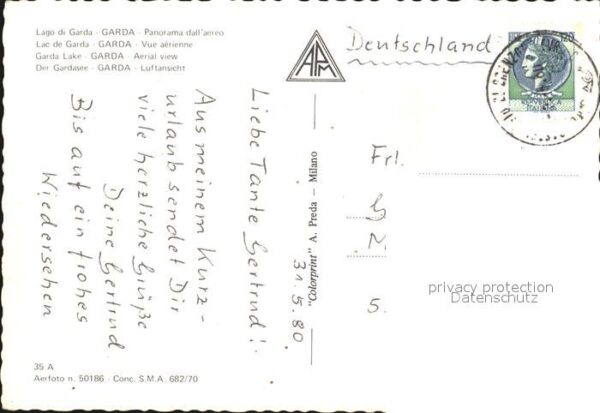 Lago di Garda - GARDA - Panorama dall'aereo
Lac de Garda - GARDA - Vue aérienne
Garda Lake - GARDA - Aerial view
Der Gardasee - GARDA - Luftansicht
APM
Deutschland
31.5.80.
Liebe Tante Gertrud!
Aus meinem Kurz-
urlaub sendet Dir
viele herzliche Grüße
Deine Gertrud
Bis auf ein frohes
Wiedersehen
"Colorprint" A. Preda — Milano
Frl.
G
M
S.
privacy protection
Datenschutz
35 A
Aerfoto n. 50186 - Conc. S.M.A. 682/70